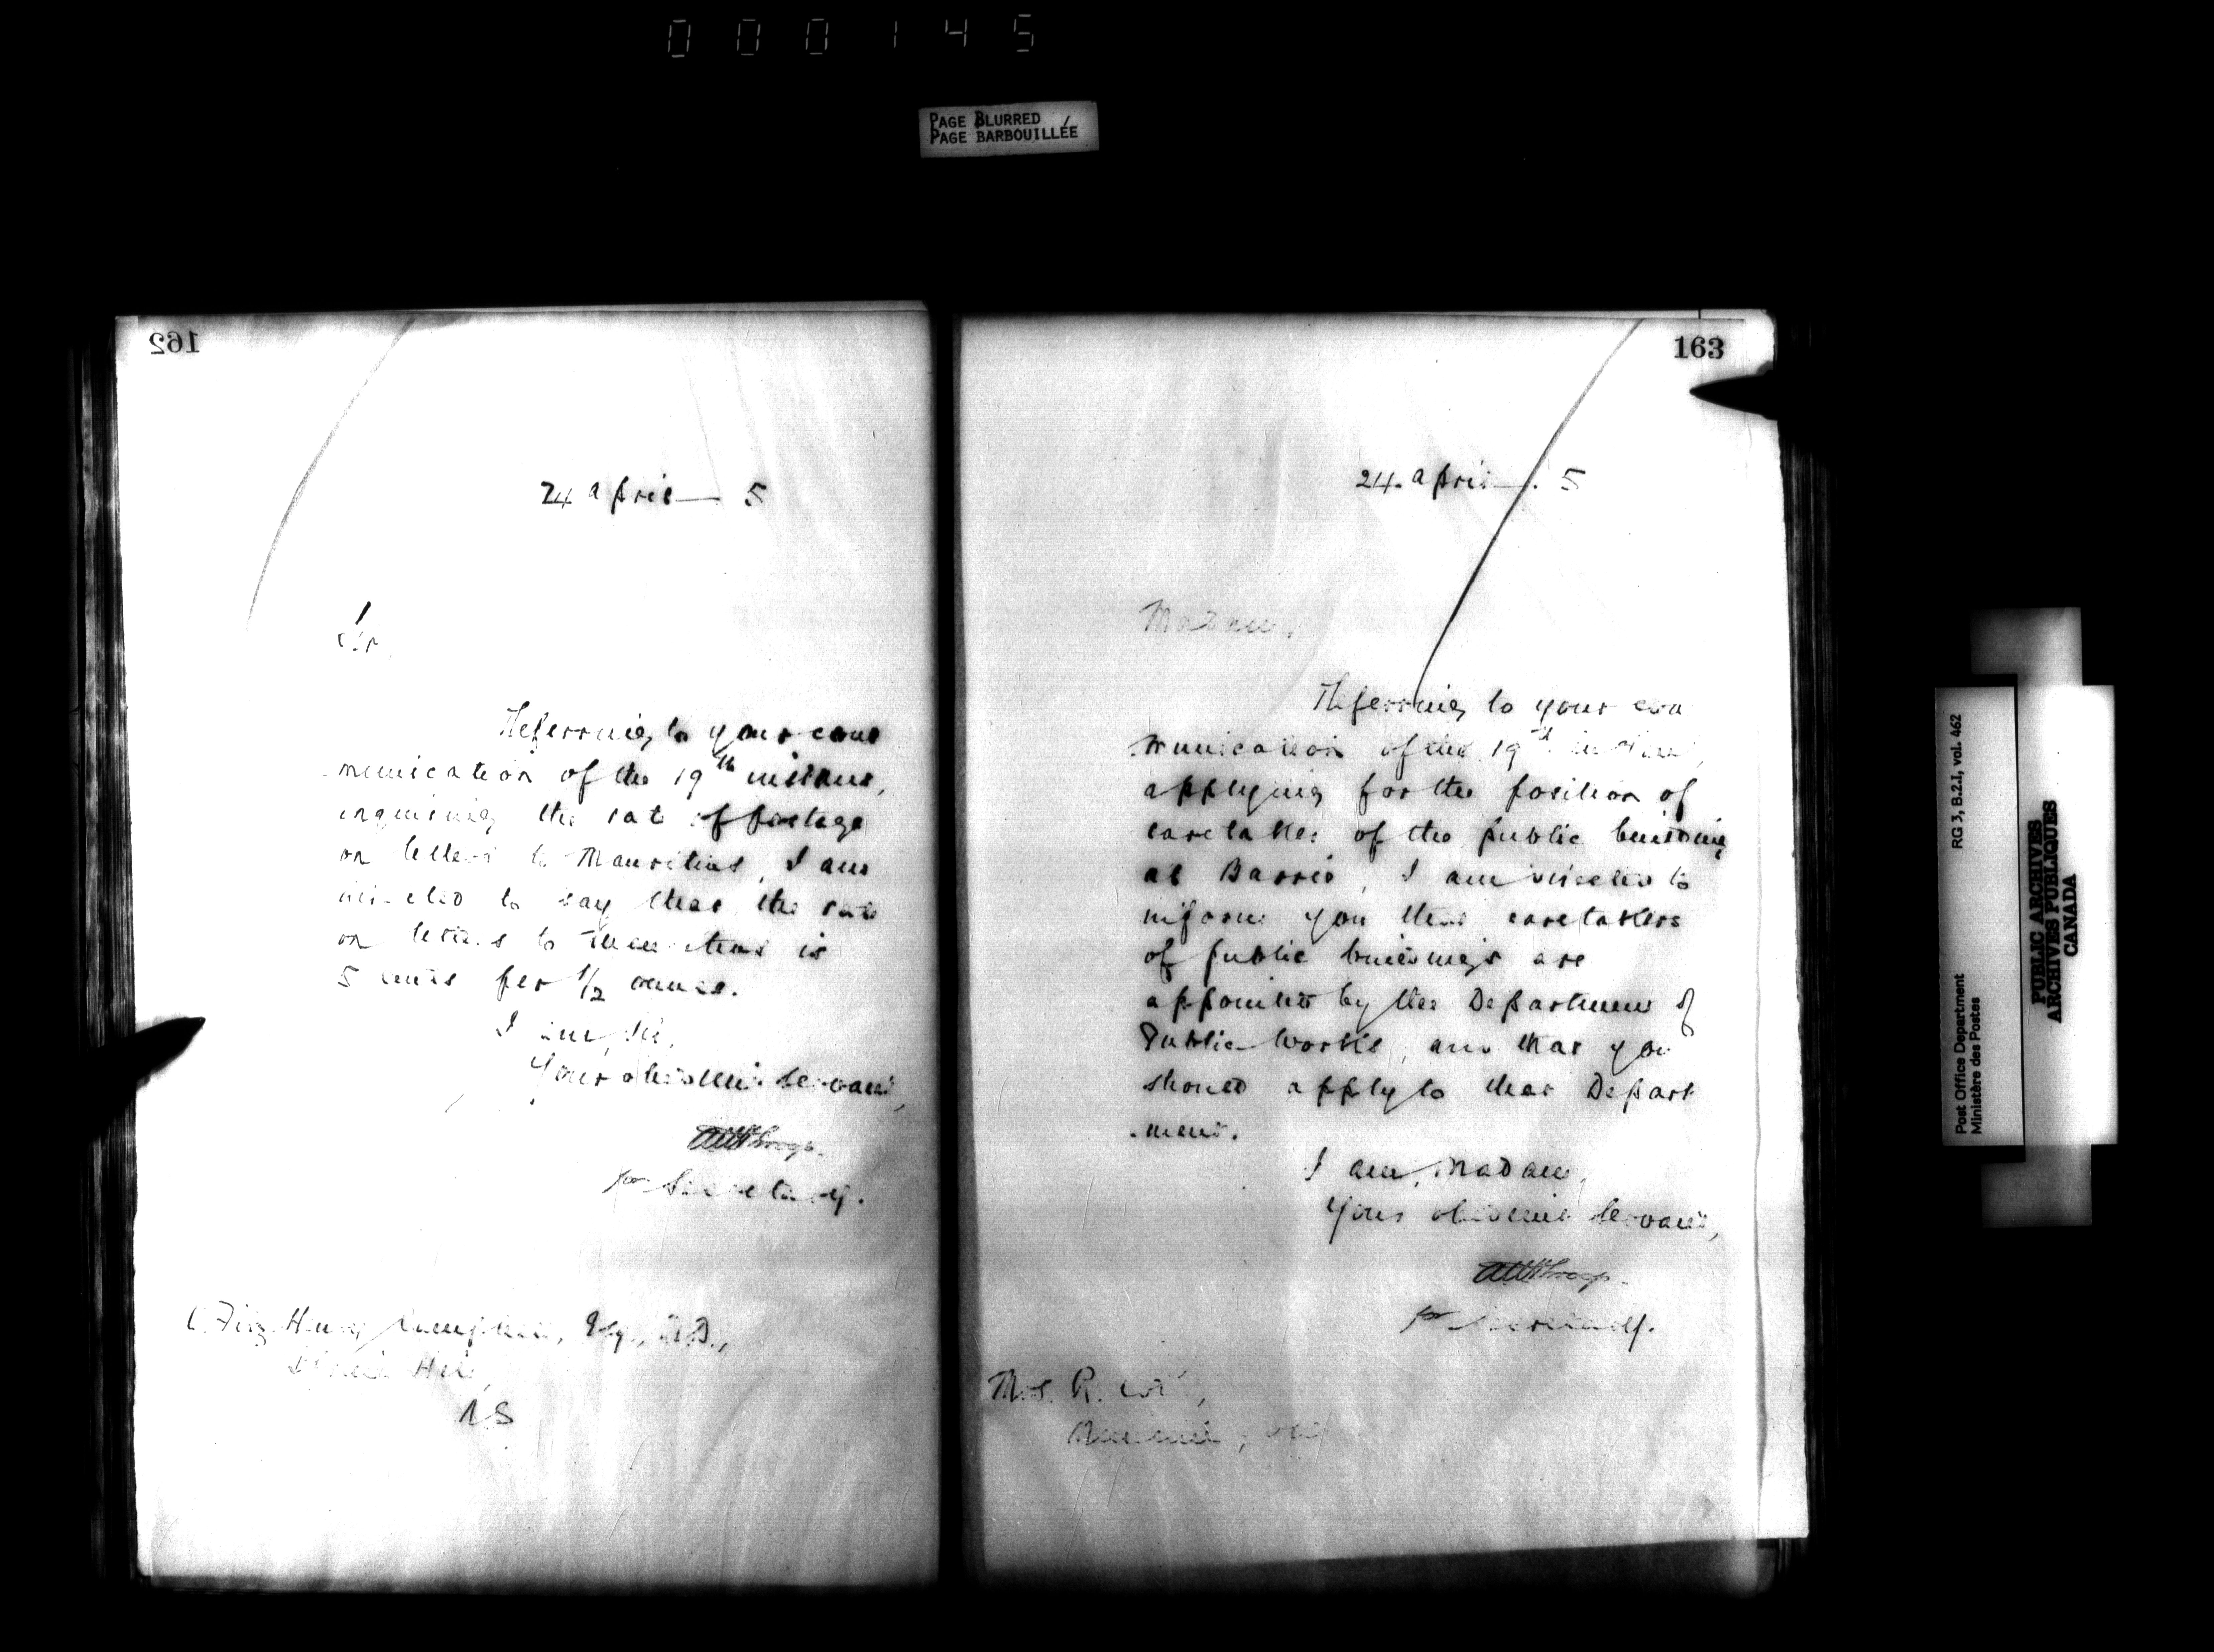 000145
PAGE BLURRED
PAGE BARBOUILLÉE
162
24 April — 5
Sir,
Referring to your com
munication of the 19th instant,
inquiring the rate of postage
on letters to Mauritius, I am
directed to say that the rate
on letters to Mauritius is
5 cents per 1/2 ounce.
I am, Sir,
Your obedient Servant,
for Secretary.
C. Fitz Henry Campbell, Esq., M.D.,
NS
163
24. April — . 5
Madam,
Referring to your com
munication of the 19th instant,
applying for the position of
caretaker of the public building
at Barrie, I am directed to
inform you that caretakers
of public buildings are
appointed by the Department of
Public Works, and that you
should apply to that Depart
-ment.
I am, Madam,
Your obedient Servant,
for Secretary.
Mrs. R.
Post Office Department
Ministère des Postes
RG 3, B.2.I, vol. 462
PUBLIC ARCHIVES
ARCHIVES PUBLIQUES
CANADA